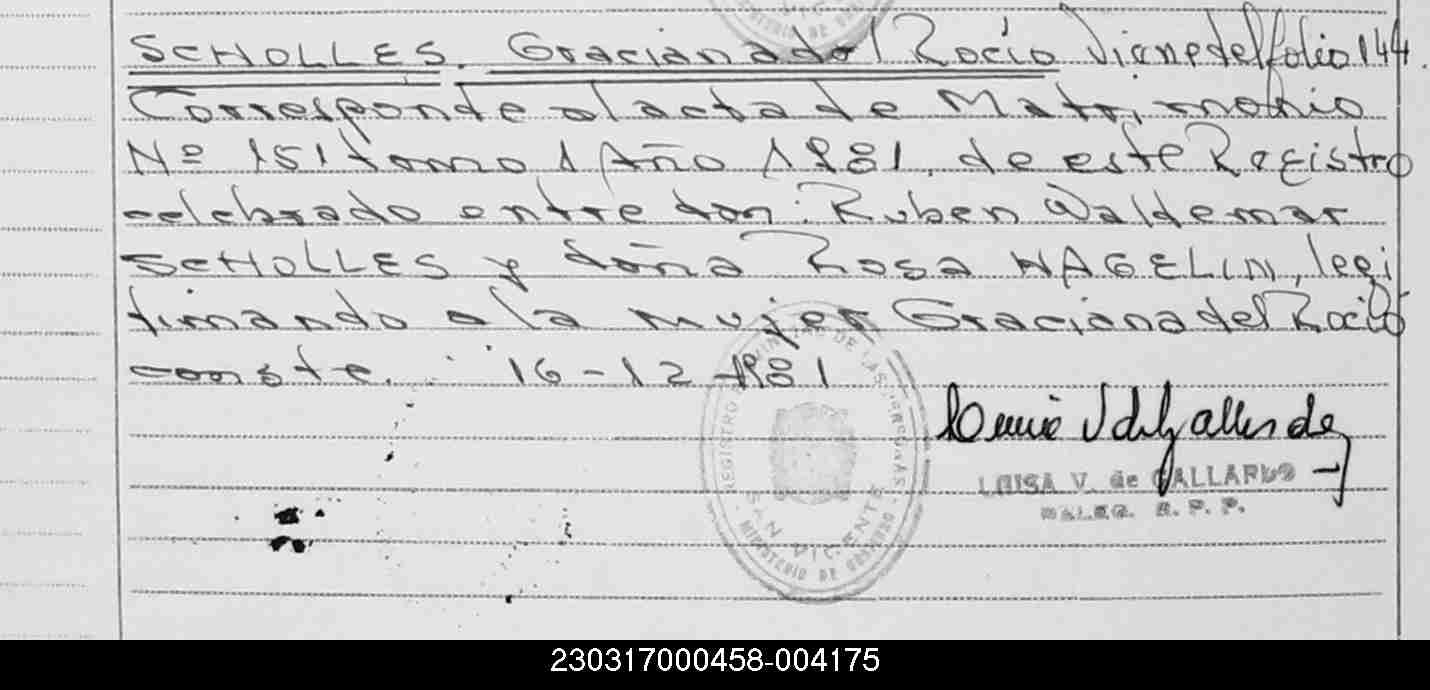 SCHOLLES. Graciana del Rocío Viene del folio 144.
Corresponde al acta de Matrimonio
Nº 151 tomo 1 Año 1981, de este Registro
celebrado entre don: Ruben Waldemar
SCHOLLES y doña Rosa HAGELIN, legi
timando a la mujer Graciana del Rocío
conste. 16-12-1981
REGISTRO PROVINCIAL DE LAS PERSONAS
SAN VICENTE
MINISTERIO DE GOBIERNO
LUISA V. de GALLARDO
R. P. P.
230317000458-004175